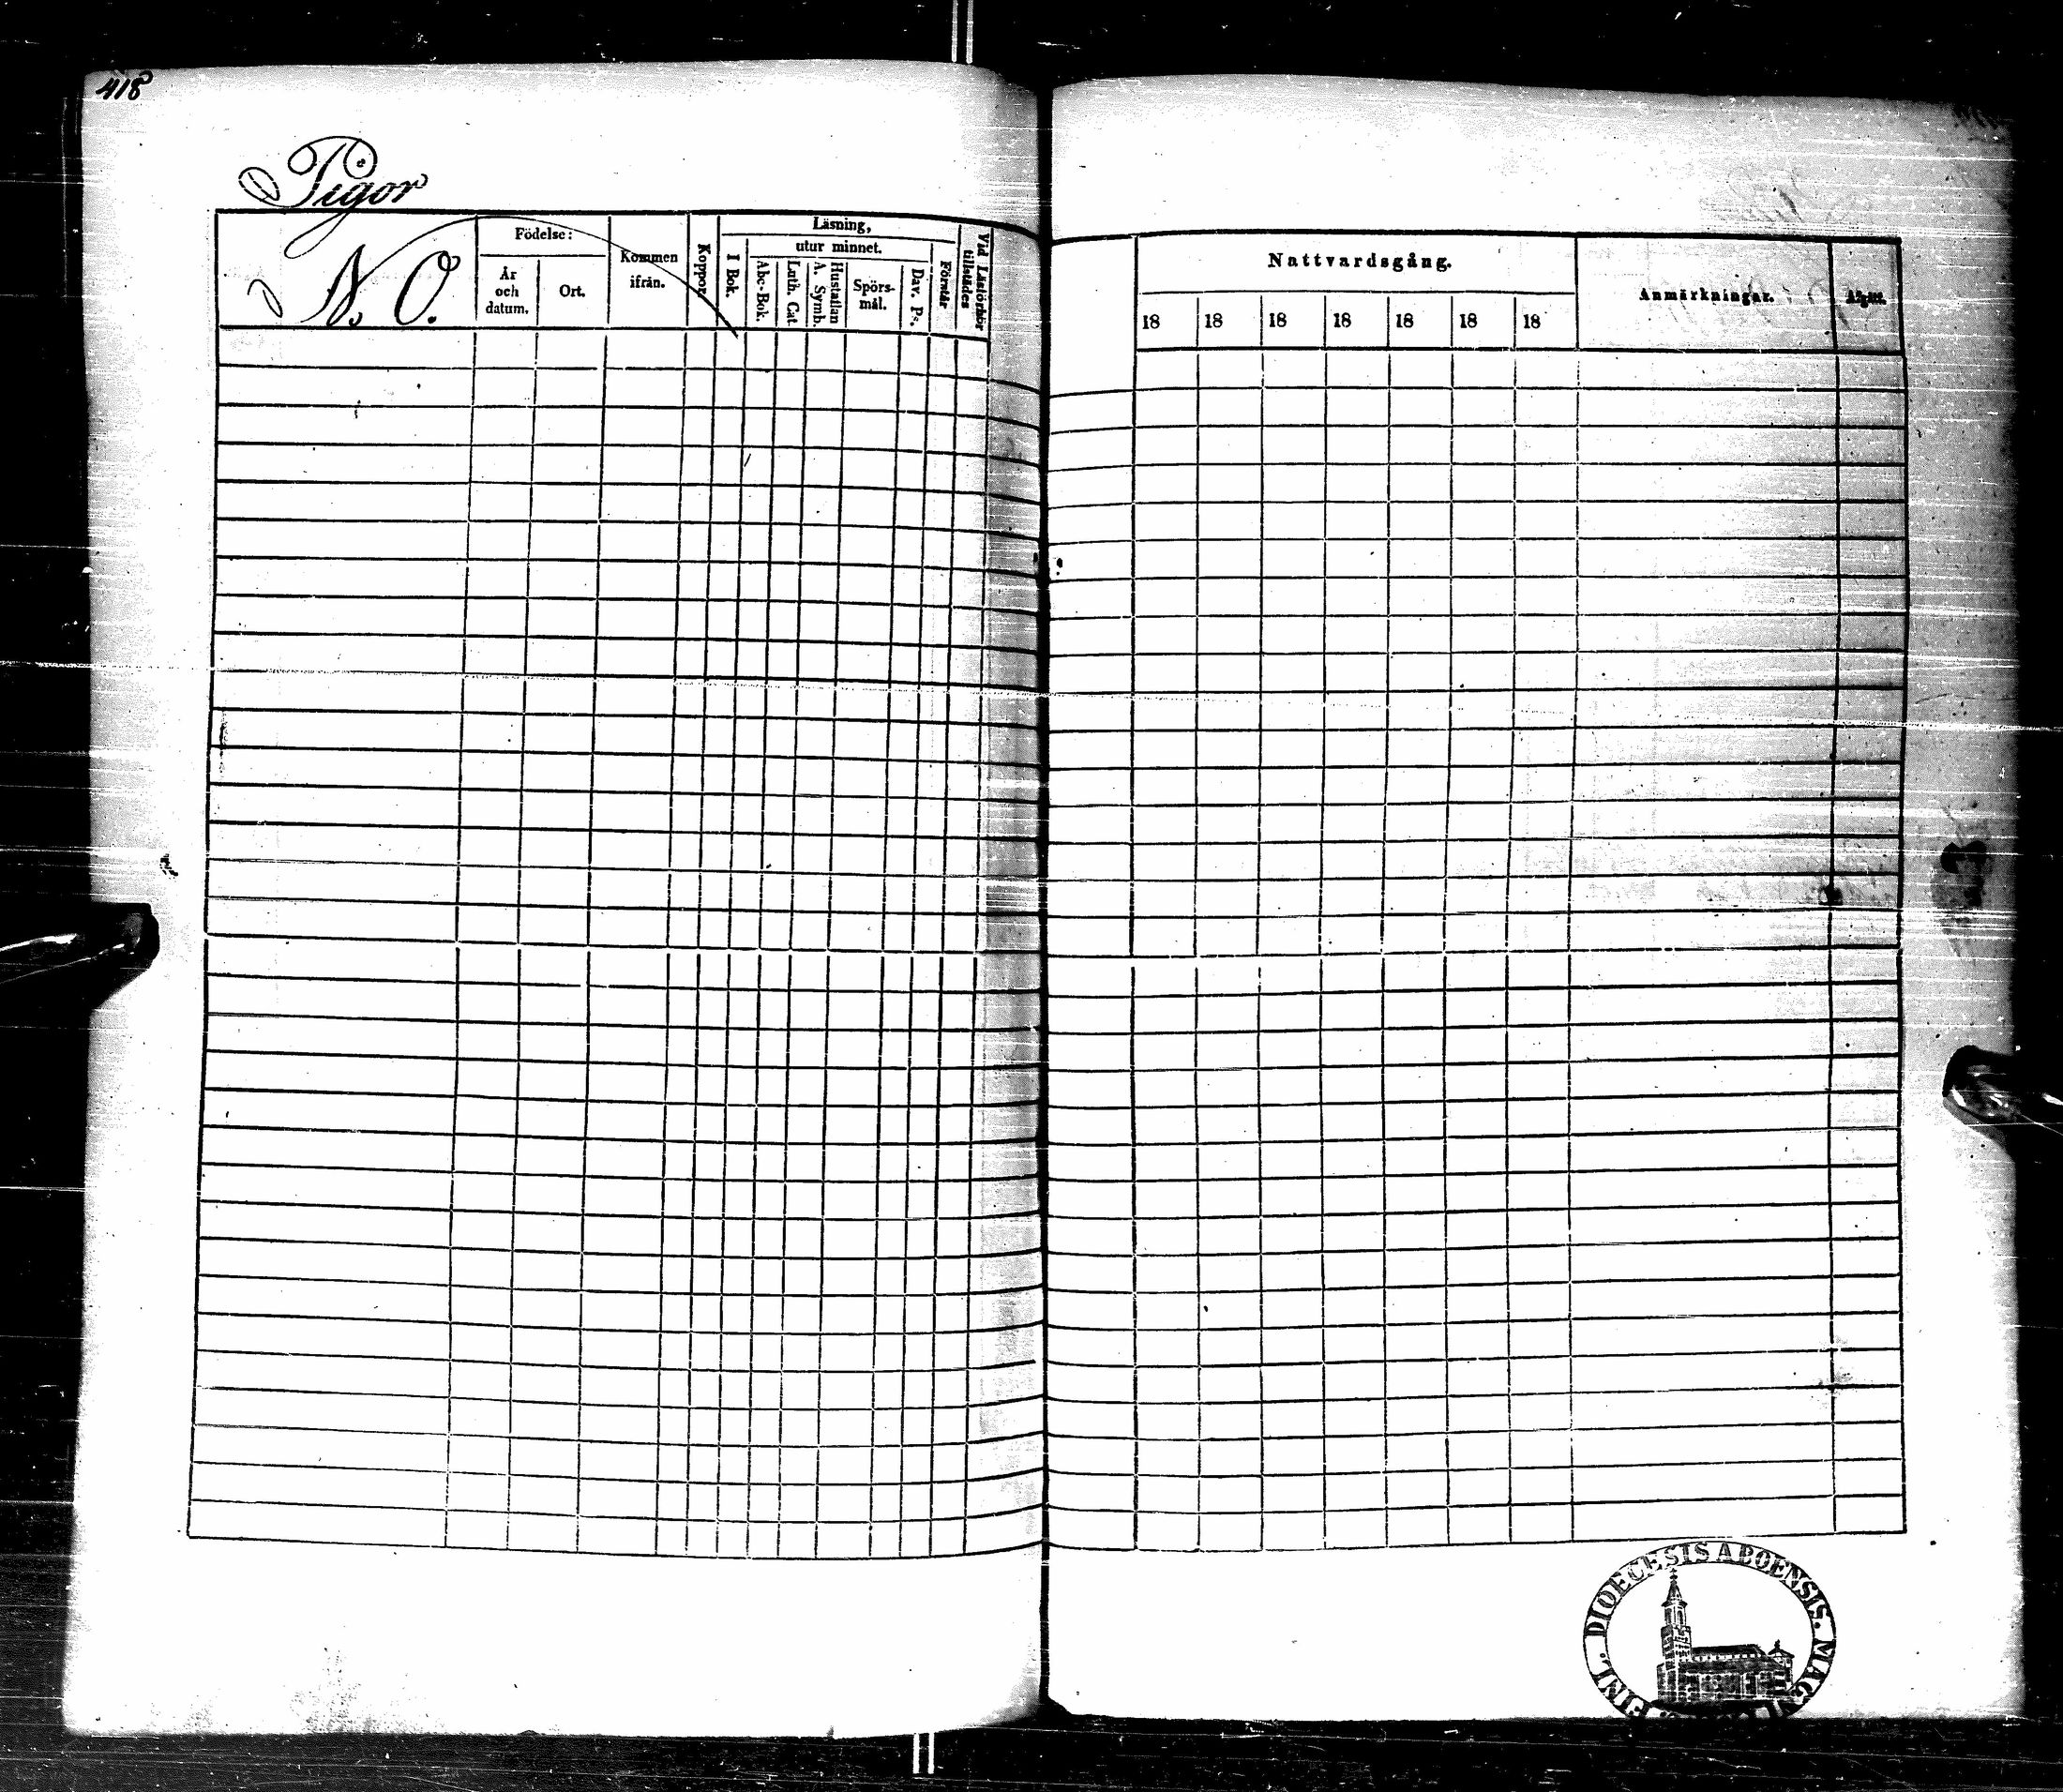 418
Pigor
N. O.
Födelse:
År
och
datum.
Ort.
Kommen
ifrån.
Koppor.
Läsning,
I Bok.
utur minnet.
Abc-Bok.
Luth. Cat.
A. Symb.
Hustaflan
Spörs-
mål.
Dav. Ps.
Förstår
Vid Läsförhör
tillstädes
Nattvardsgång.
18 18 18 18 18 18 18
Anmärkningar.
Afgått.
DIOECESIS ABOENSIS. MAGNI
FINL.